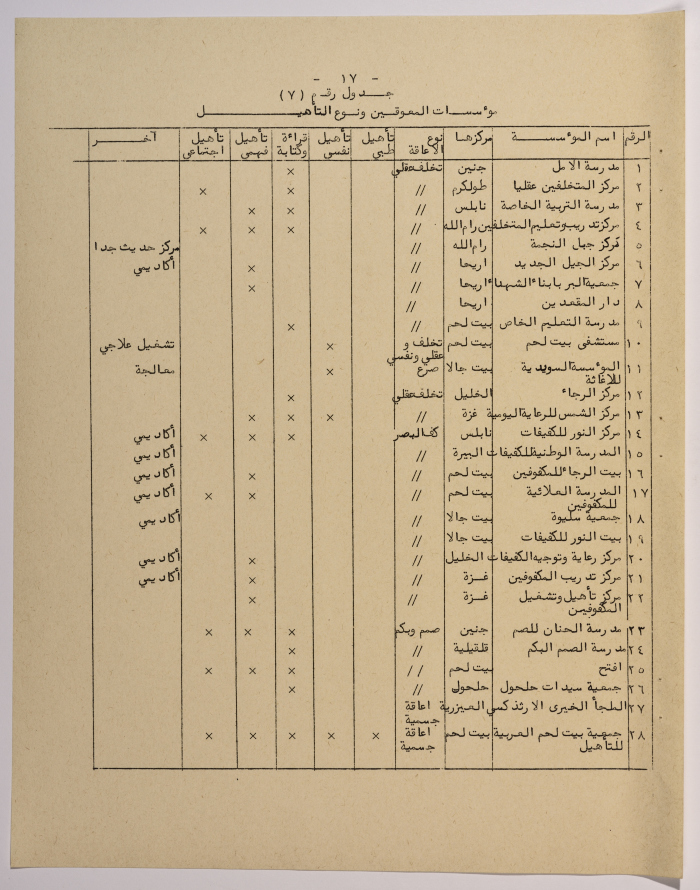 - ١٧ -
جـدول رقـم (٧)
مؤسسات المعوقين ونوع التأهيـل
الرقم اسم المؤسسـة مركزها نوع الاعاقة تأهيل طبي تأهيل نفسي قراءة وكتابة تأهيل مهني تأهيل اجتماعي آخـر
١ مدرسة الامل جنين تخلف عقلي ×
٢ مركز المتخلفين عقليا طولكرم // × ×
٣ مدرسة التربية الخاصة نابلس // × ×
٤ مركز تدريب وتعليم المتخلفين رام الله // × × ×
٥ مركز جبل النجمة رام الله // مركز حديث جدا
٦ مركز الجيل الجديد اريحا // × أكاديمي
٧ جمعية البر بابناء الشهداء اريحا // ×
٨ دار المقعدين اريحا //
٩ مدرسة التعليم الخاص بيت لحم // ×
١٠ مستشفى بيت لحم بيت لحم تخلف و × تشغيل علاجي
عقلي ونفسي
١١ المؤسسة السويدية بيت جالا صرع × معالجة
للاغاثة
١٢ مركز الرجاء الخليل تخلف عقلي ×
١٣ مركز الشمس للرعاية اليومية غزة // × × ×
١٤ مركز النور للكفيفات نابلس كف البصر × × × أكاديمي
١٥ المدرسة الوطنية للكفيفات البيرة // أكاديمي
١٦ بيت الرجاء للمكفوفين بيت لحم // × أكاديمي
١٧ المدرسة العلائية بيت لحم // × × أكاديمي
للمكفوفين
١٨ جمعية سليوة بيت جالا // أكاديمي
١٩ بيت النور للكفيفات بيت جالا //
٢٠ مركز رعاية وتوجيه الكفيفات الخليل // × أكاديمي
٢١ مركز تدريب المكفوفين غـزة // × أكاديمي
٢٢ مركز تأهيل وتشغيل غـزة // ×
المكفوفين
٢٣ مدرسة الحنان للصم جنين صمم وبكم × × ×
٢٤ مدرسة الصم البكم قلقيلية // ×
٢٥ افتح بيت لحم // × × ×
٢٦ جمعية سيدات حلحول حلحول // ×
٢٧ الملجأ الخيرى الارثذكسي العيزرية اعاقة
جسمية
٢٨ جمعية بيت لحم العربية بيت لحم اعاقة × × × × ×
للتأهيل جسمية